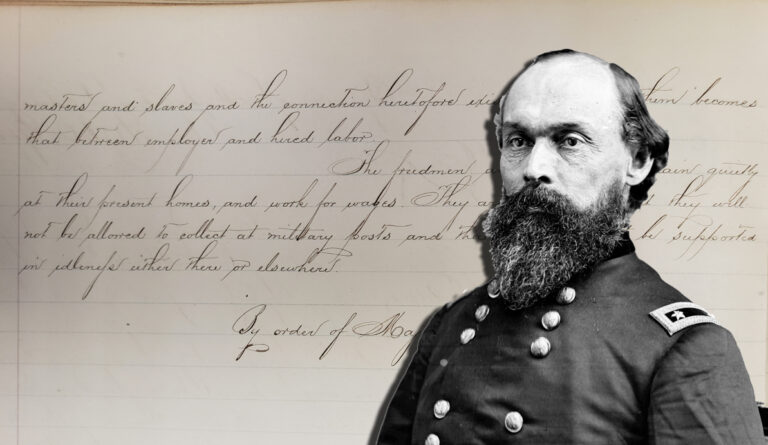 masters and slaves and the connection heretofore them becomes
that between employer and hired labor.
The freedmen quietly
at their present homes, and work for wages. They they will
not be allowed to collect at military posts and be supported
in idleness either there or elsewhere.
By order of